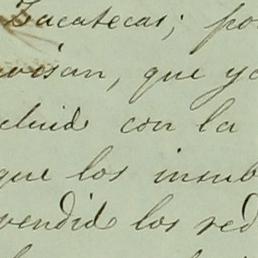 Zacatecas; po
avisan, que ya
cluid con la
que los insub
vendid los red